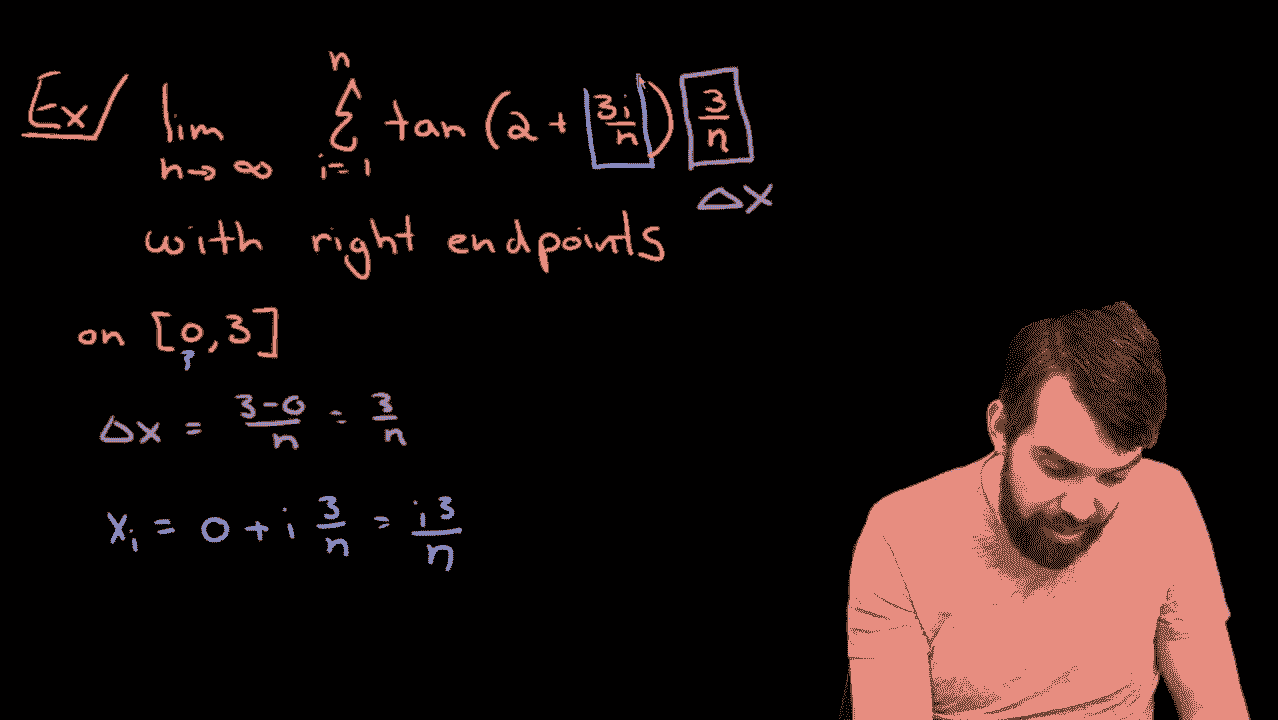 Ex/ lim n→∞ n Σ i=1 tan (2 + 3i/n) 3/n
Δx
with right endpoints
on [0,3]
Δx = 3-0/n = 3/n
xᵢ = 0 + i 3/n = i3/n